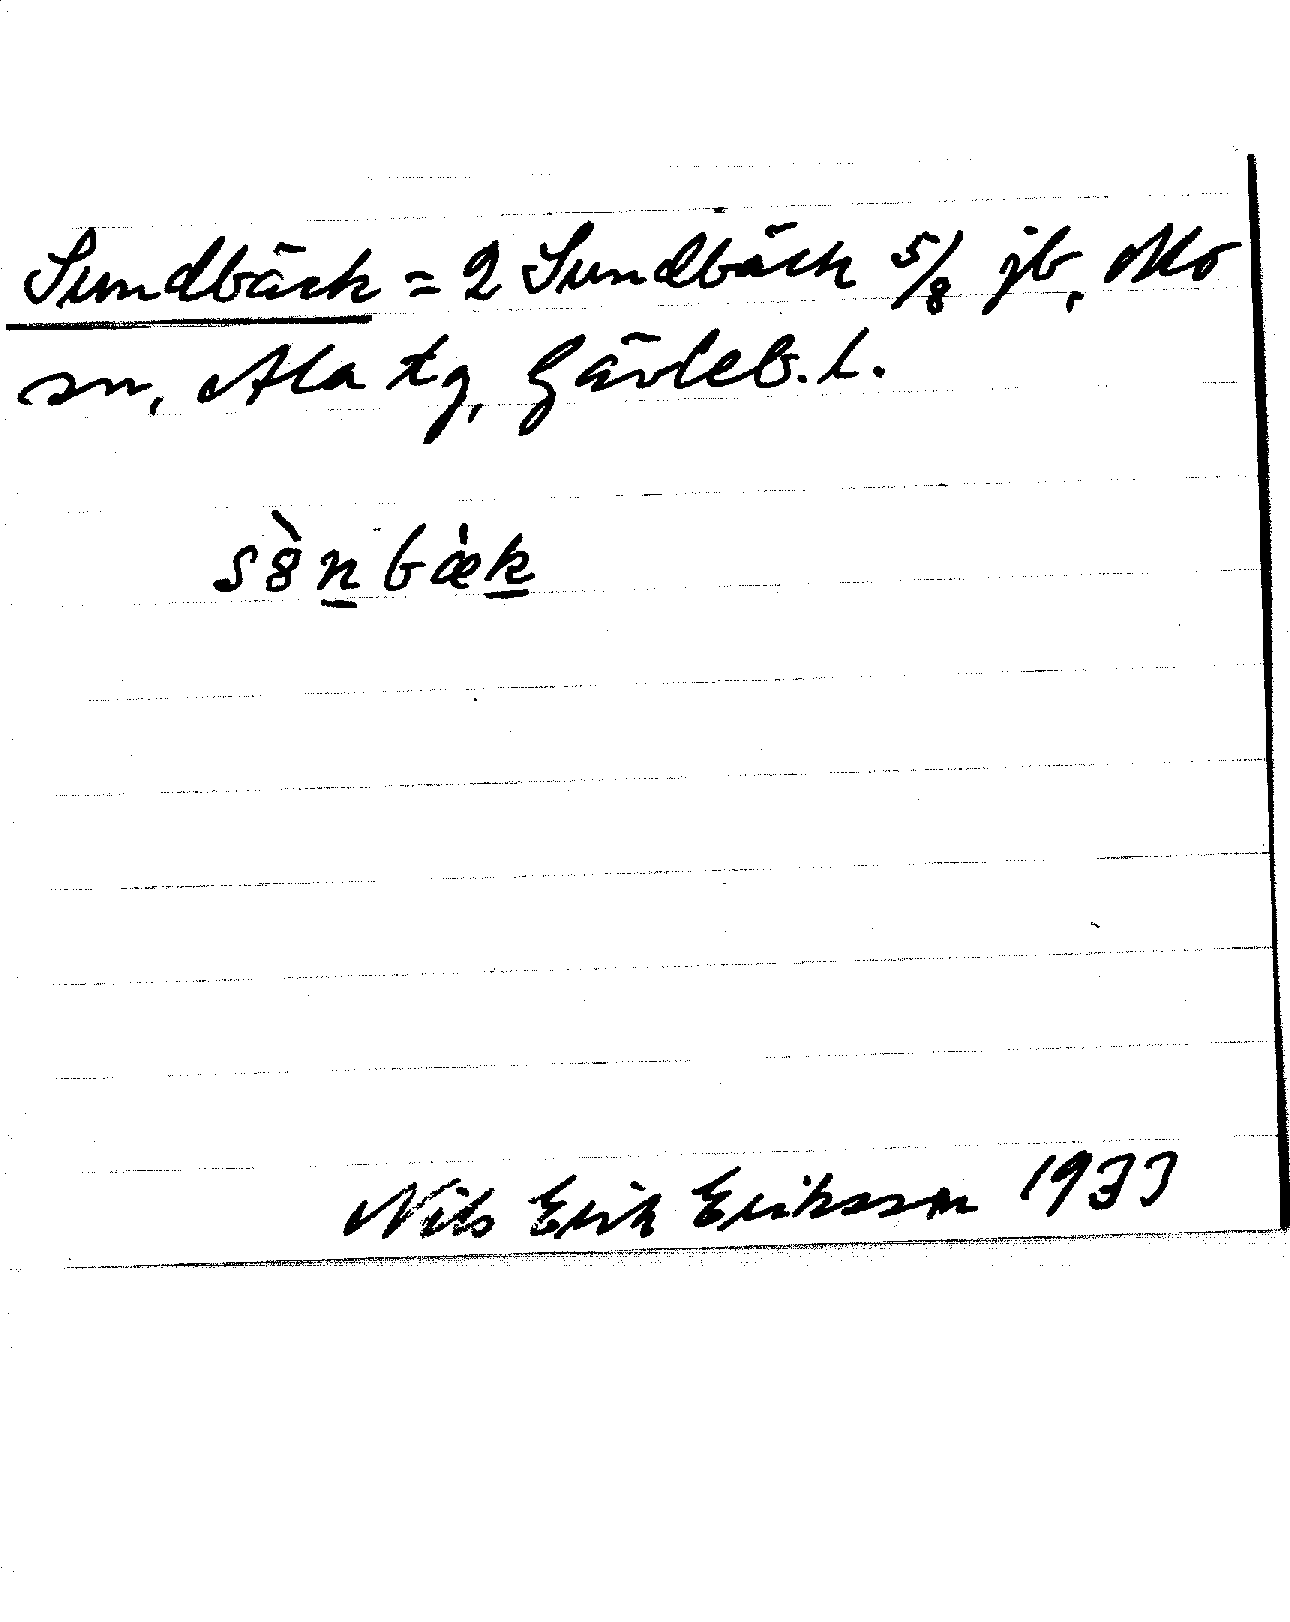 Sundbäck = 2 Sundbäck 5/8 jb, Mo
sn, Ala tg, Gävleb. l.
sò̤n bæ̀k
Nils Erik Eriksson 1933